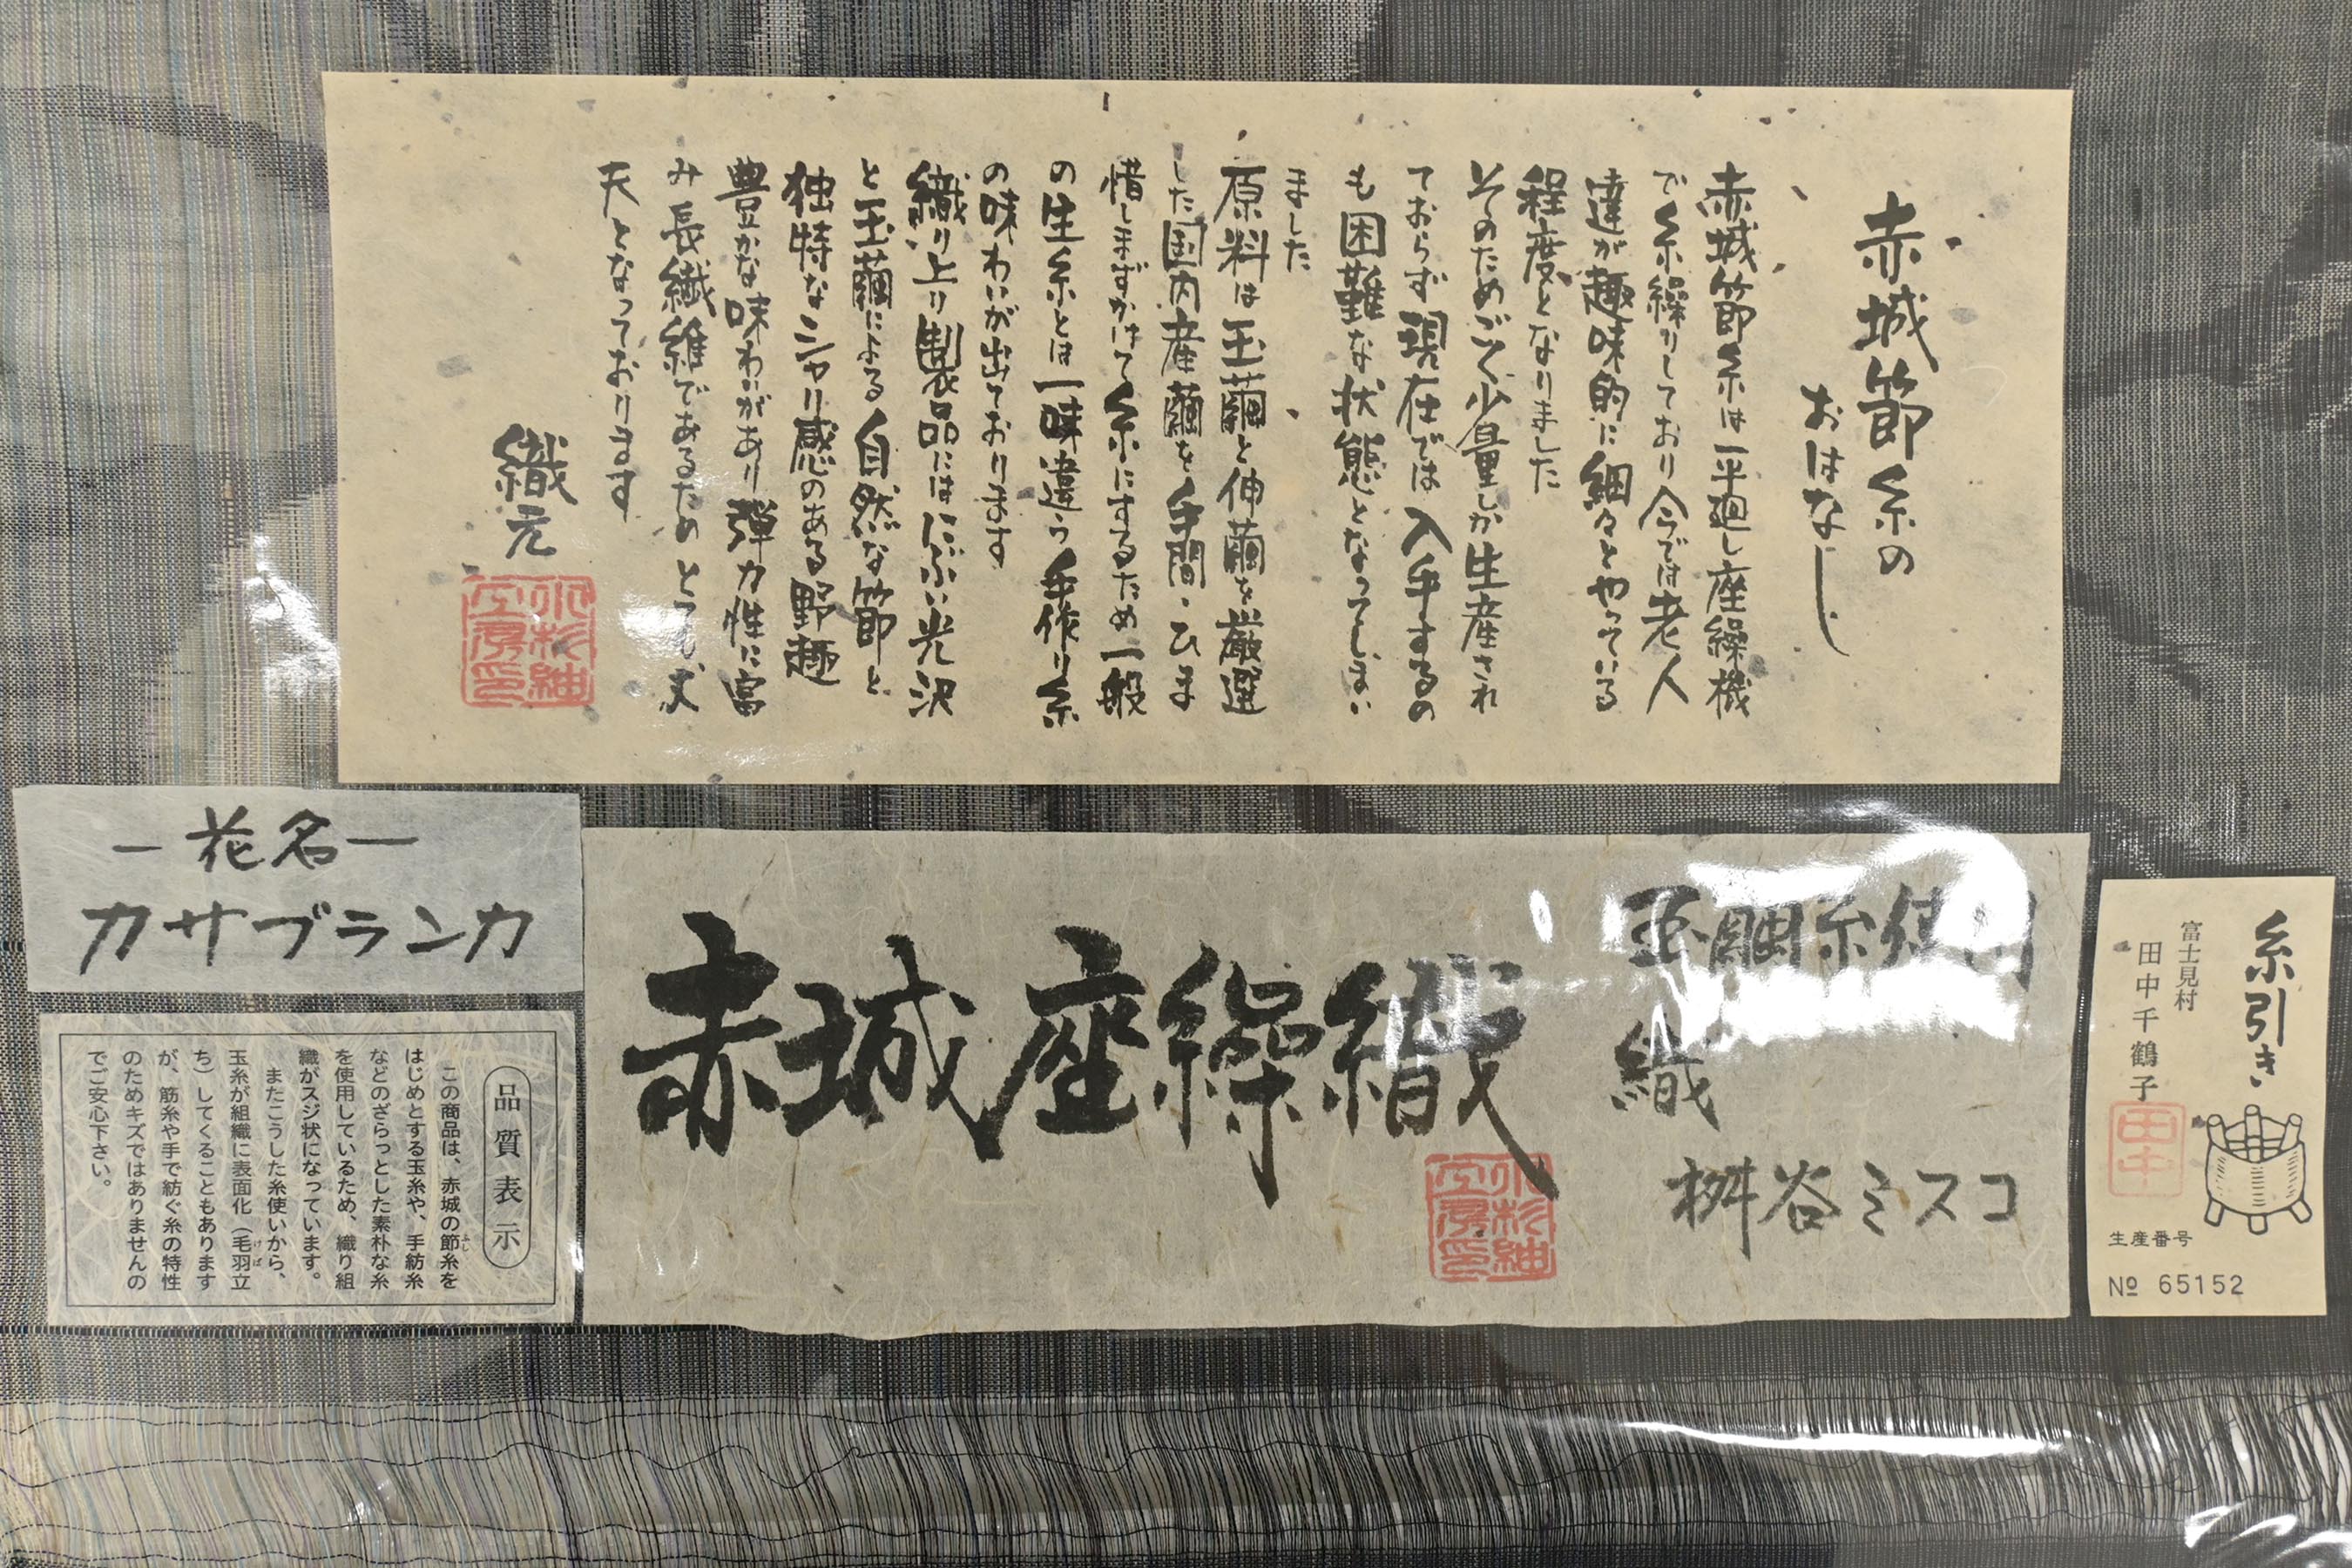 赤城節糸の
おはなし
赤城節糸は一平廻し座繰機
で糸繰りしており今では老人
達が趣味的に細々とやっている
程度となりました
そのためごく少量しか生産され
ておらず現在では入手するの
も困難な状態となってしまい
ました
原料は玉繭と伸繭を厳選
した国内産繭を手間・ひま
惜しまずかけて糸にするため一般
の生糸とは一味違う手作り糸
の味わいが出ております
織り上り製品にはにぶい光沢
と玉繭による自然な節と
独特なシャリ感のある野趣
豊かな味わいがあり弾力性に富
み長繊維であるためとても丈
夫となっております
織元
小杉紬
工房印
―花名―
カサブランカ
品質表示
この商品は、赤城の節糸を
はじめとする玉糸や、手紡糸
などのざらっとした素朴な糸
を使用しているため、織り組
織がスジ状になっています。
またこうした糸使いから、
玉糸が組織に表面化(毛羽立
ち)してくることもあります
が、節糸や手で紡ぐ糸の特性
のためキズではありませんの
でご安心下さい。
赤城座繰織
玉繭糸使用
織
桝谷ミスコ
小杉紬
工房印
糸引き
富士見村
田中千鶴子
田中
生産番号
№ 65152